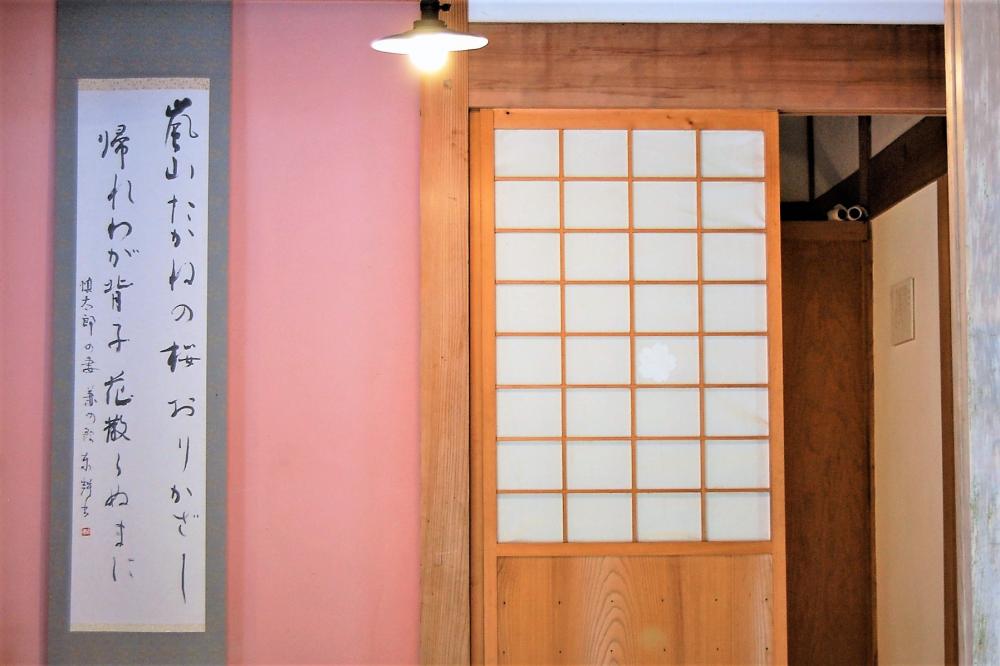 嵐山たかねの桜おりかざし
帰れわが背子花散らぬまに
慎太郎の妻 兼の歌 東耕書